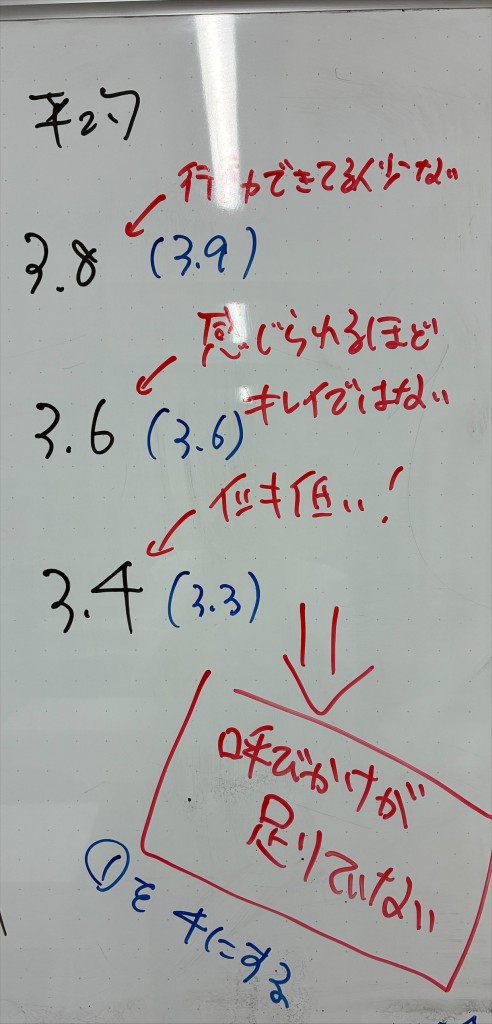 行動できてる人少ない
3.8 (3.9)
感じられるほど
キレイではない
3.6 (3.6)
低い!
3.4 (3.3)
呼びかけが
足りていない
①を4にする